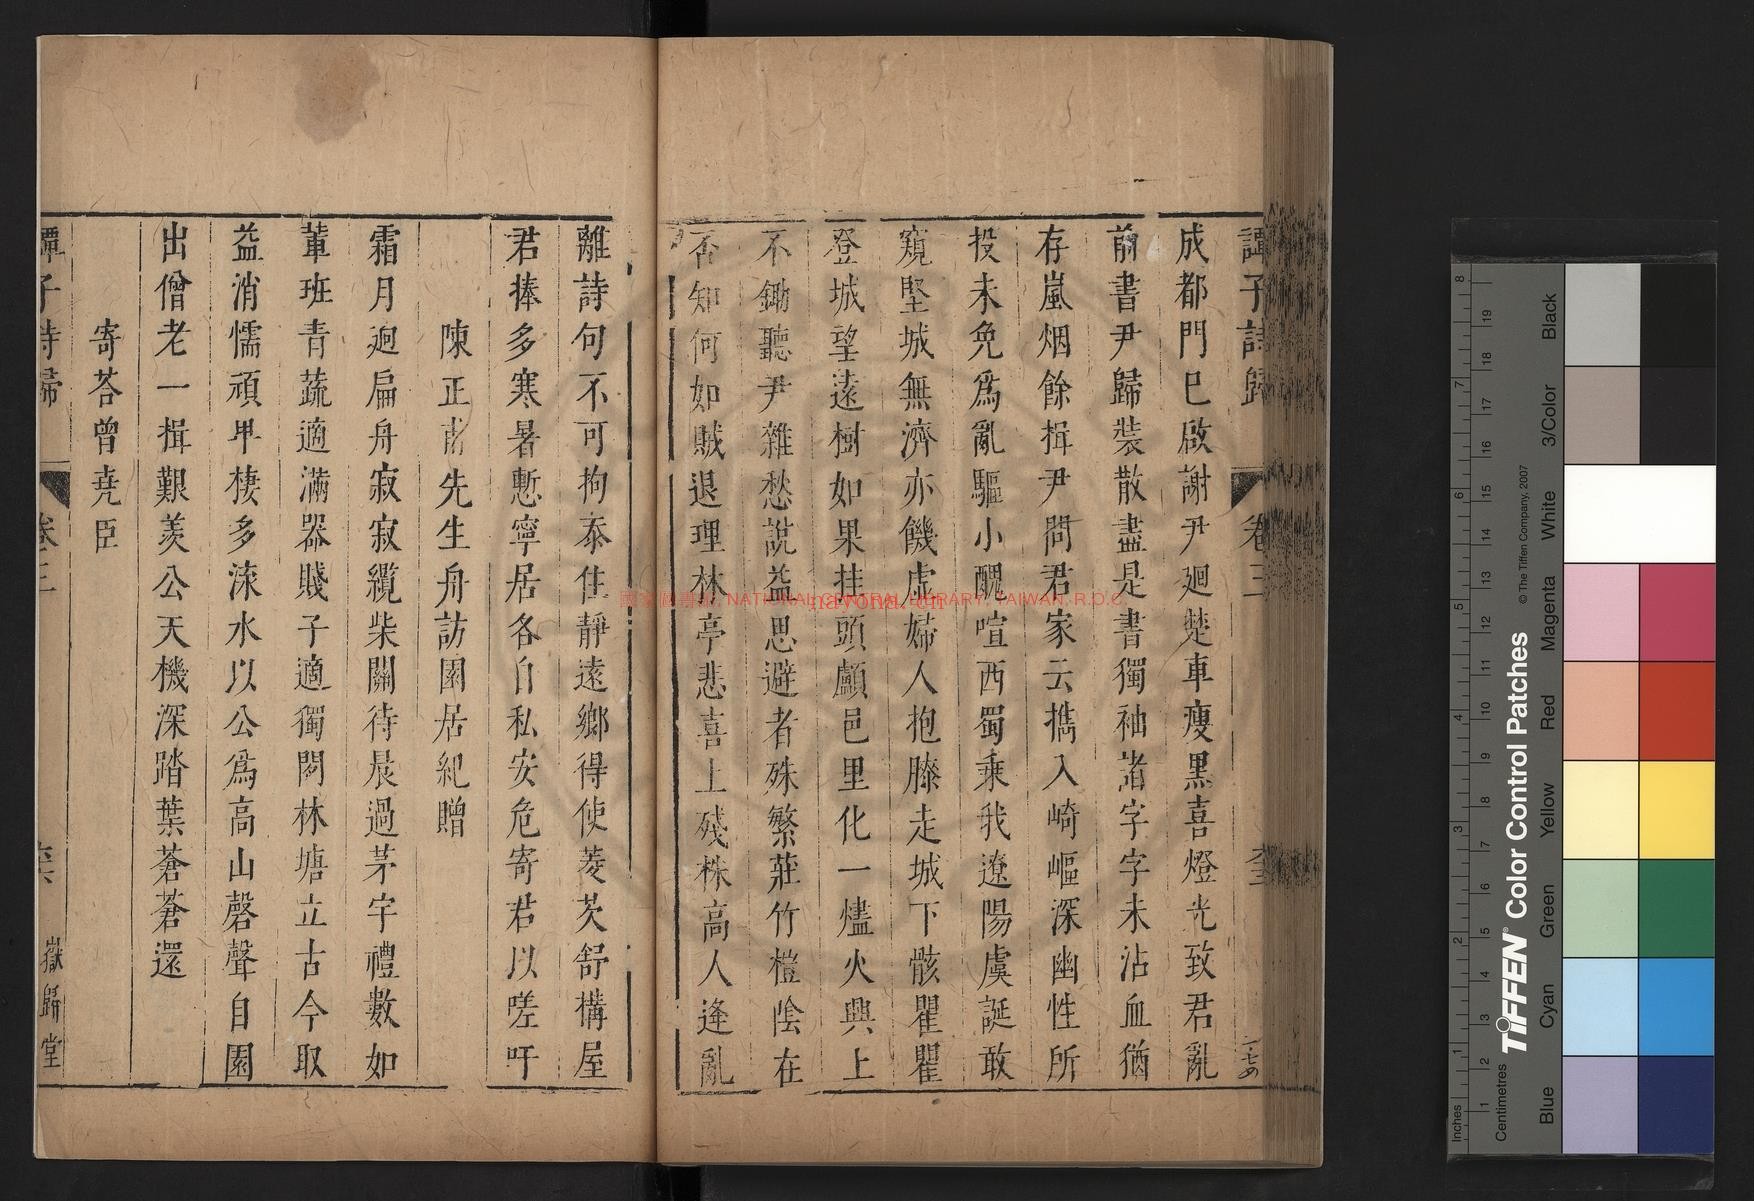 譚子詩歸 卷三
成都門已啟謝尹廻楚車瘦黒喜燈光致君亂
前書尹歸裝散盡是書獨袖諸字字未沾血猶
存嵐烟餘揖尹問君家云攜入崎嶇深幽性所
投未免爲亂驅小醜喧西蜀乗我遼陽虞誕敢
窺堅城無濟亦饑虛婦人抱膝走城下骸瞿瞿
登城望遠樹如果挂頭顱邑里化一燼火興上
不鋤聽尹雜愁說益思避者殊繁莊竹榿陰在
否知何如賊退理林亭悲喜上殘株高人逢亂
離詩句不可拘泰住靜遠鄉得使菱芡舒構屋
君捧多寒暑慙寧居各自私安危寄君以嗟吁
陳正甫先生舟訪園居紀贈
霜月逈扁舟寂寂纜柴關待晨過茅宇禮數如
輩班青蔬適滿器賤子適獨閒林塘立古今取
益消懦頑甲棲多深水以公爲高山磬聲自園
出僧老一揖艱羨公天機深踏葉蒼蒼還
寄荅曾堯臣
譚子詩歸 卷三 嶽歸堂
國家圖書館, NATIONAL CENTRAL LIBRARY, TAIWAN, R.O.C
nayona.cn
TIFFEN Color Control Patches
© The Tiffen Company, 2007
Inches
1 2 3 4 5 6 7 8
Centimetres
1 2 3 4 5 6 7 8 9 10 11 12 13 14 15 16 17 18 19
Blue Cyan Green Yellow Red Magenta White 3/Color Black